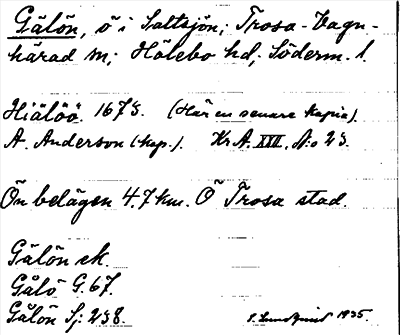 Gälön, ö i Saltsjön; Trosa-Vagn-
härad sn; Hölebo hd; Söderm. l.
Hiälöö. 1678. (Här en senare kopia).
A. Anderson (kop.). Kr A. XXII. No 23.
Ön belägen 4.7 km. Ö Trosa stad.
Gälön ek.
Gälö G. 67.
Gälön Sj. 238.
S. Lundqvist 1935.